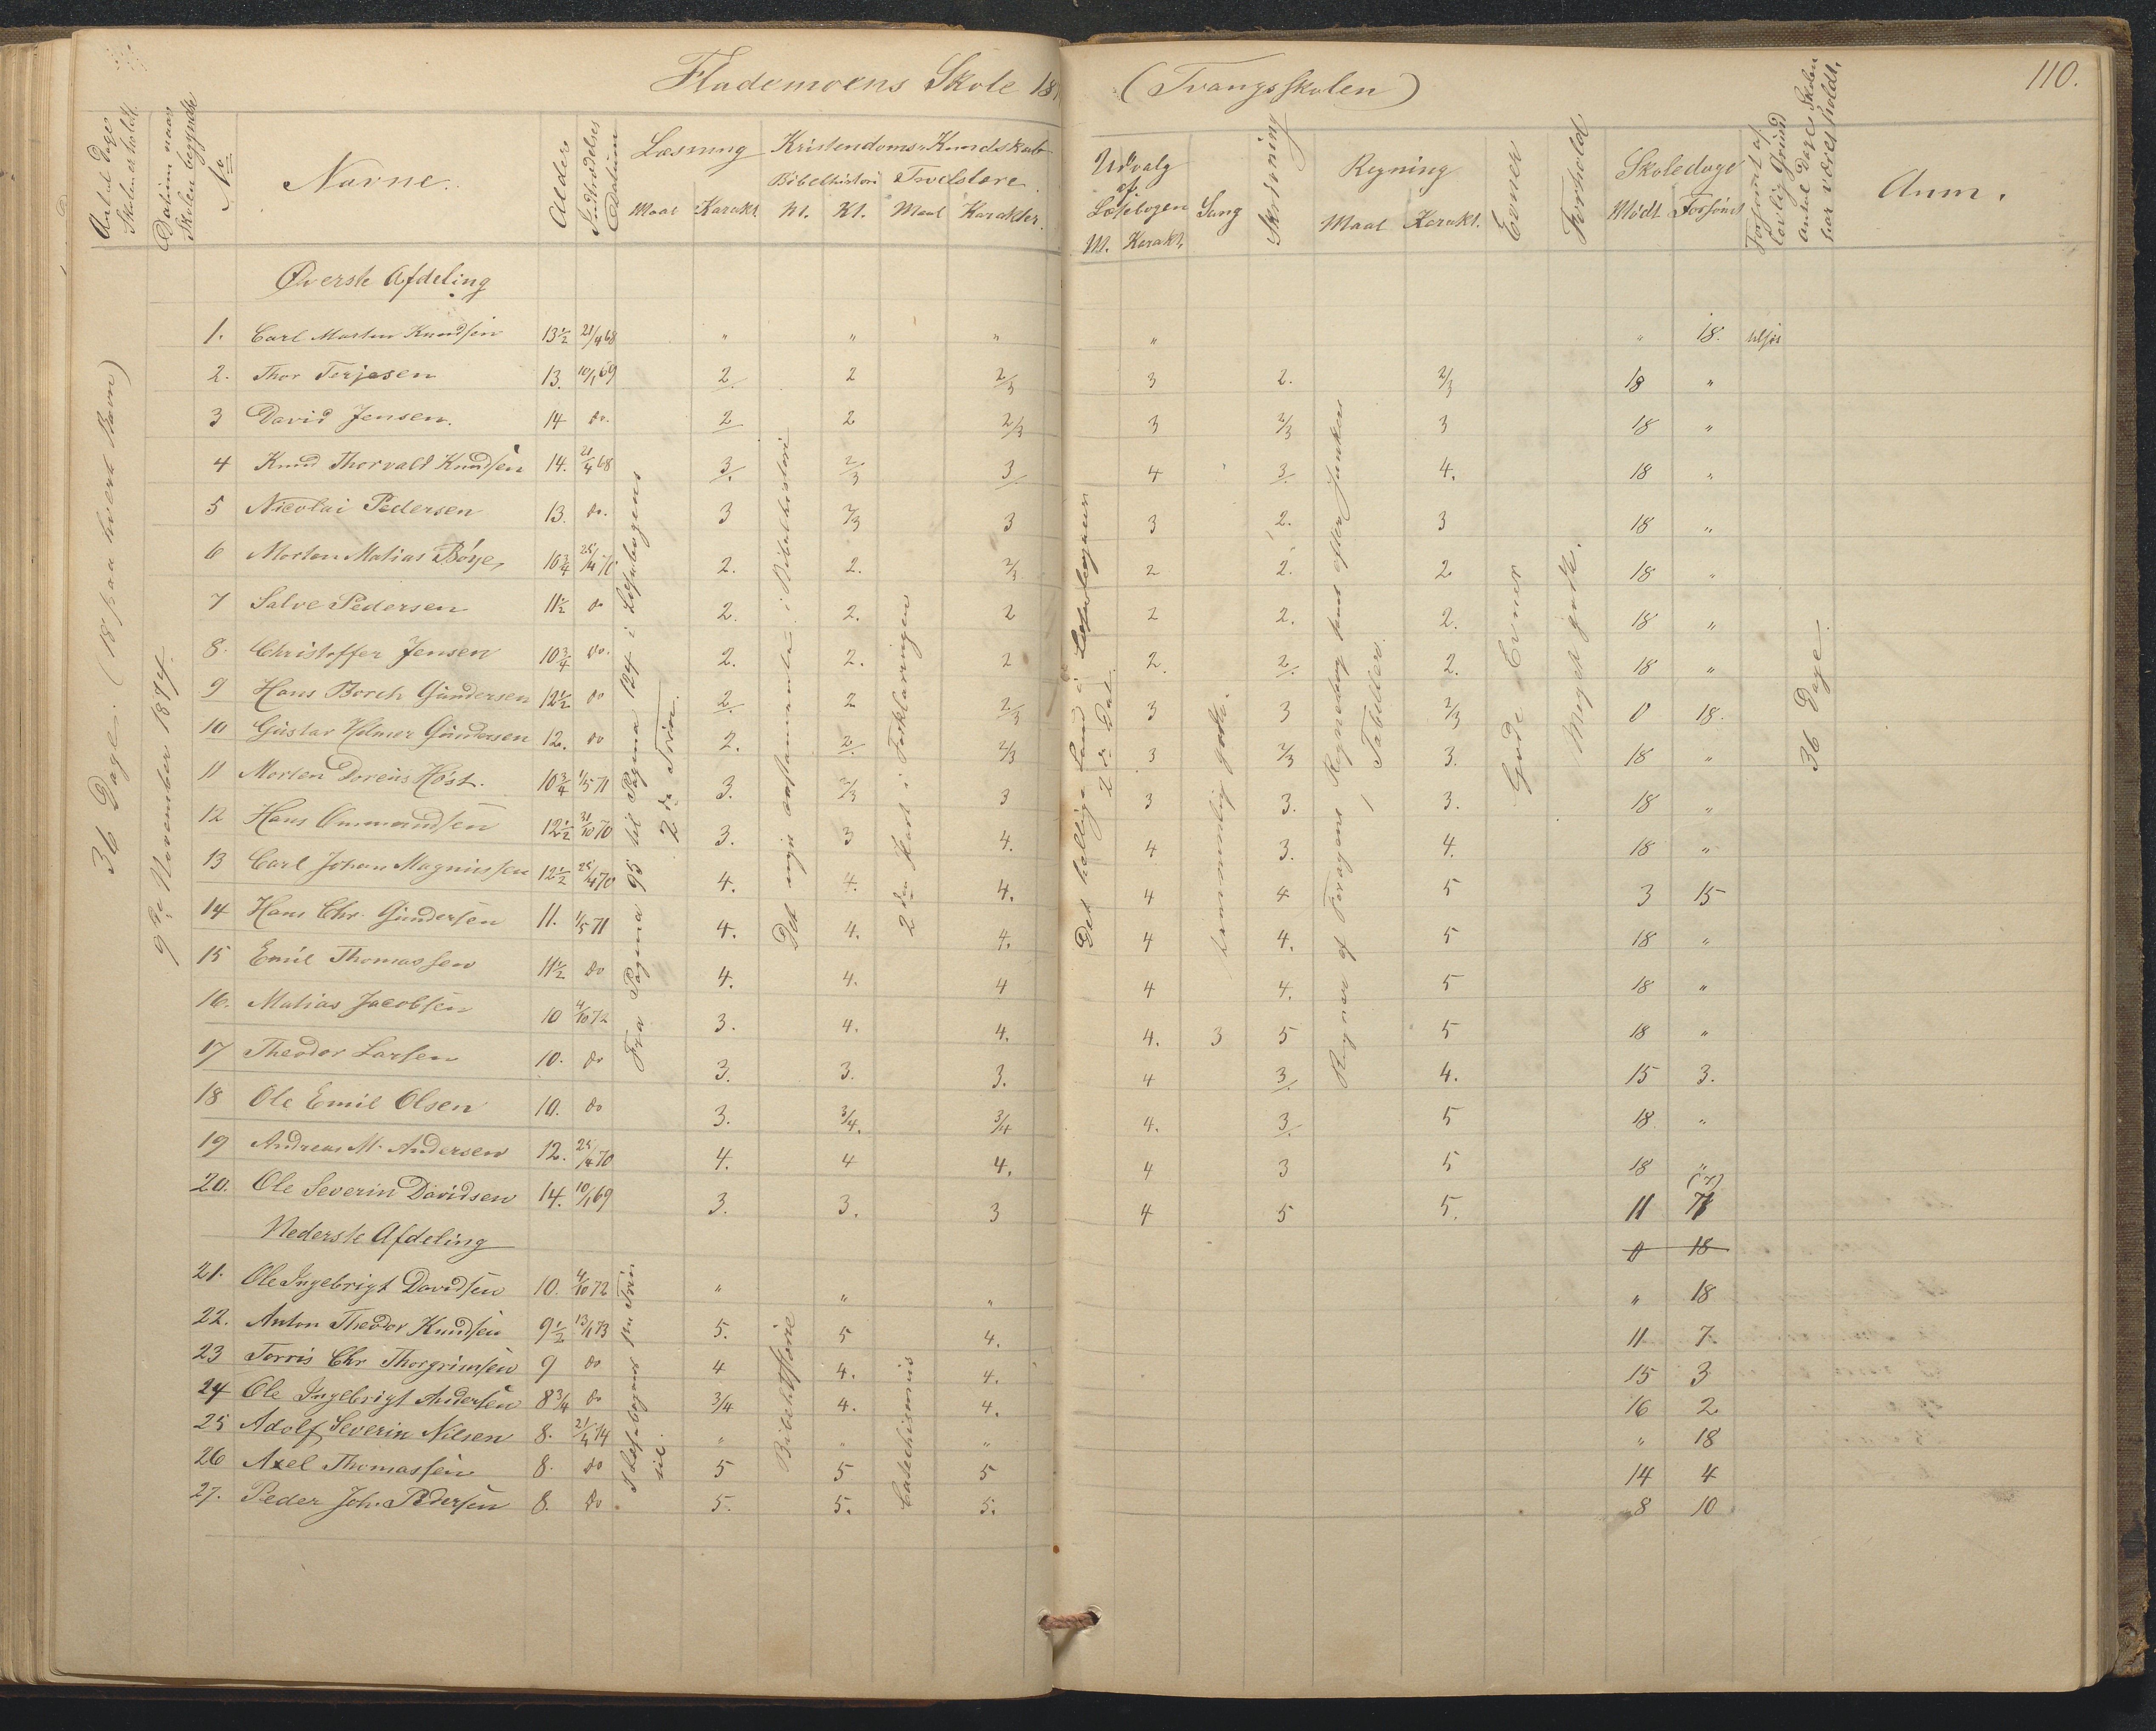 Flademoens Skole 18
(Tvangsskolen)
110.
Antal Dage Skolen er holdt.
Datum naar Skolen begyndte
No
Navne.
Alder
Indtrædelses Datum
Læsning
Maal Karakt.
Kristendoms-Kundskab
Bibelhistori Troeslære.
Kl. Maal Karakter.
Udvalg af Læsebogen
M. Karakt.
Sang
Skrivning
Regning
Maal Karakt.
Evner
Forhold
Skoledage
Mødt Forsømt
Forsømt af lovlig Grund
Antal Dage Skolen har været holdt.
Anm.
36 Dage. (18 paa hvert Navn)
9de November 1874.
Øverste Afdeling
1. Carl Morten Knudsen 13½ 21/4 68 " " " " " 18.
2. Thor Terjesen 13. 10/1 69 2 2 2/3 3 2. 2/3 18 "
3 David Jensen. 14 do. 2 2 2/3 3 2/3 3 18 "
4 Knud Thorvald Knudsen 14. 21/4 68 3. 2/3 3 4 3 4. 18 "
5 Nicolai Pedersen 13. do. 3 2/3 3 3 2. 3 18 "
6 Morten Matias Böye, 10¾ 25/4 70 2. 2. 2/3 2 2. 2 18 "
7 Salve Pedersen 11½ do 2. 2. 2 2 2. 2. 18 "
8. Christoffer Jensen 10¾ do. 2. 2. 2 2. 2 2. 18 "
9 Hans Borch Gundersen 12½ do 2 2 2/3 3 3 2/3 0 18.
10 Gustav Helmer Gundersen 12. do 2. 2 2/3 3 2/3 3. 18 "
11 Morten Doreus Höst. 10¾ 1/5 71 3. 2/3 3 3 3. 3. 18 "
12 Hans Ommundsen 12½ 31/10 70 3. 3 4. 4 3. 4. 18 "
13 Carl Johan Magnussen 12½ 25/4 70 4. 4. 4. 4 4 5 3 15
14 Hans Chr. Gundersen 11. 1/5 71 4. 4. 4. 4 4. 5 18 "
15 Emil Thomassen 11½ do 4. 4. 4 4 4. 5 18 "
16. Matias Jacobsen 10 4/10 72 3. 4. 4. 4. 3 5 5 18 "
17 Theodor Larsen 10. do 3. 3. 3. 4 3 4. 15 3.
18 Ole Emil Olsen 10. do 3. 3/4. 3/4 4. 3 5 18 "
19 Andreas M. Andersen 12. 25/4 70 4. 4 4. 4 3 5 18 "
20. Ole Severin Davidsen 14. 10/1 69 3. 3. 3 4 5 5. 11 (7)
Nederste Afdeling
0 18
21. Ole Ingebrigt Davidsen 10. 4/10 72 " " " " 18
22. Anton Theodor Knudsen 9½ 13/1 73 5. 5 4. 11 7.
23 Torris Chr Thorgrimsen 9 do 4 4. 4. 15 3
24 Ole Ingebrigt Andersen 8¾ do 3/4 4. 4. 16 2
25 Adolf Severin Nilsen 8. 21/4 74 " " " " 18
26 Axel Thomassen 8. do 5 5 5 14 4
27. Peder Joh. Pedersen 8. do 5. 5. 5. 8 10
Fra Pagina 95 til Pagina 124 i Læsebogens 2de Trin.
Det nye Testamente i Bibelhistorie
2den Part i Forklaringen
Det hellige Land i Læsebogens 2de Del
temmelig godt.
Regner af Foragens Regnebog samt efter Junkers Tabeller.
Gode Evner
Meget godt.
36 Dage.
Bibelhistorie
Catechismus